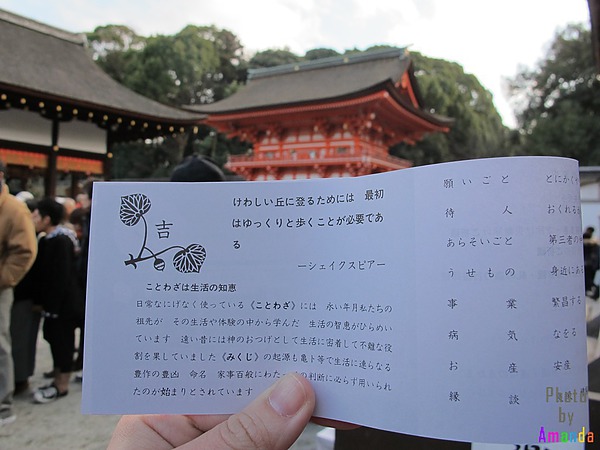 吉
けわしい丘に登るためには 最初
はゆっくりと歩くことが必要であ
る
―シェイクスピアー
ことわざは生活の知恵
日常なにげなく使っている《ことわざ》には 永い年月私たちの
祖先が その生活や体験の中から学んだ 生活の智恵がひらめい
ています 遠い昔には神のおつげとして生活に密着して不離な役
割を果していました《みくじ》の起源も亀ト等で生活に連らなる
豊作の豊凶 命名 家事百般にわた の判断に必らず用いられ
たのが始まりとされています
願いごと とにかく
待人 おくれる
あらそいごと 第三者の
うせもの 身近にある
事業 繁昌する
病気 なをる
お産 安産
縁談
Photo
by
Amanda